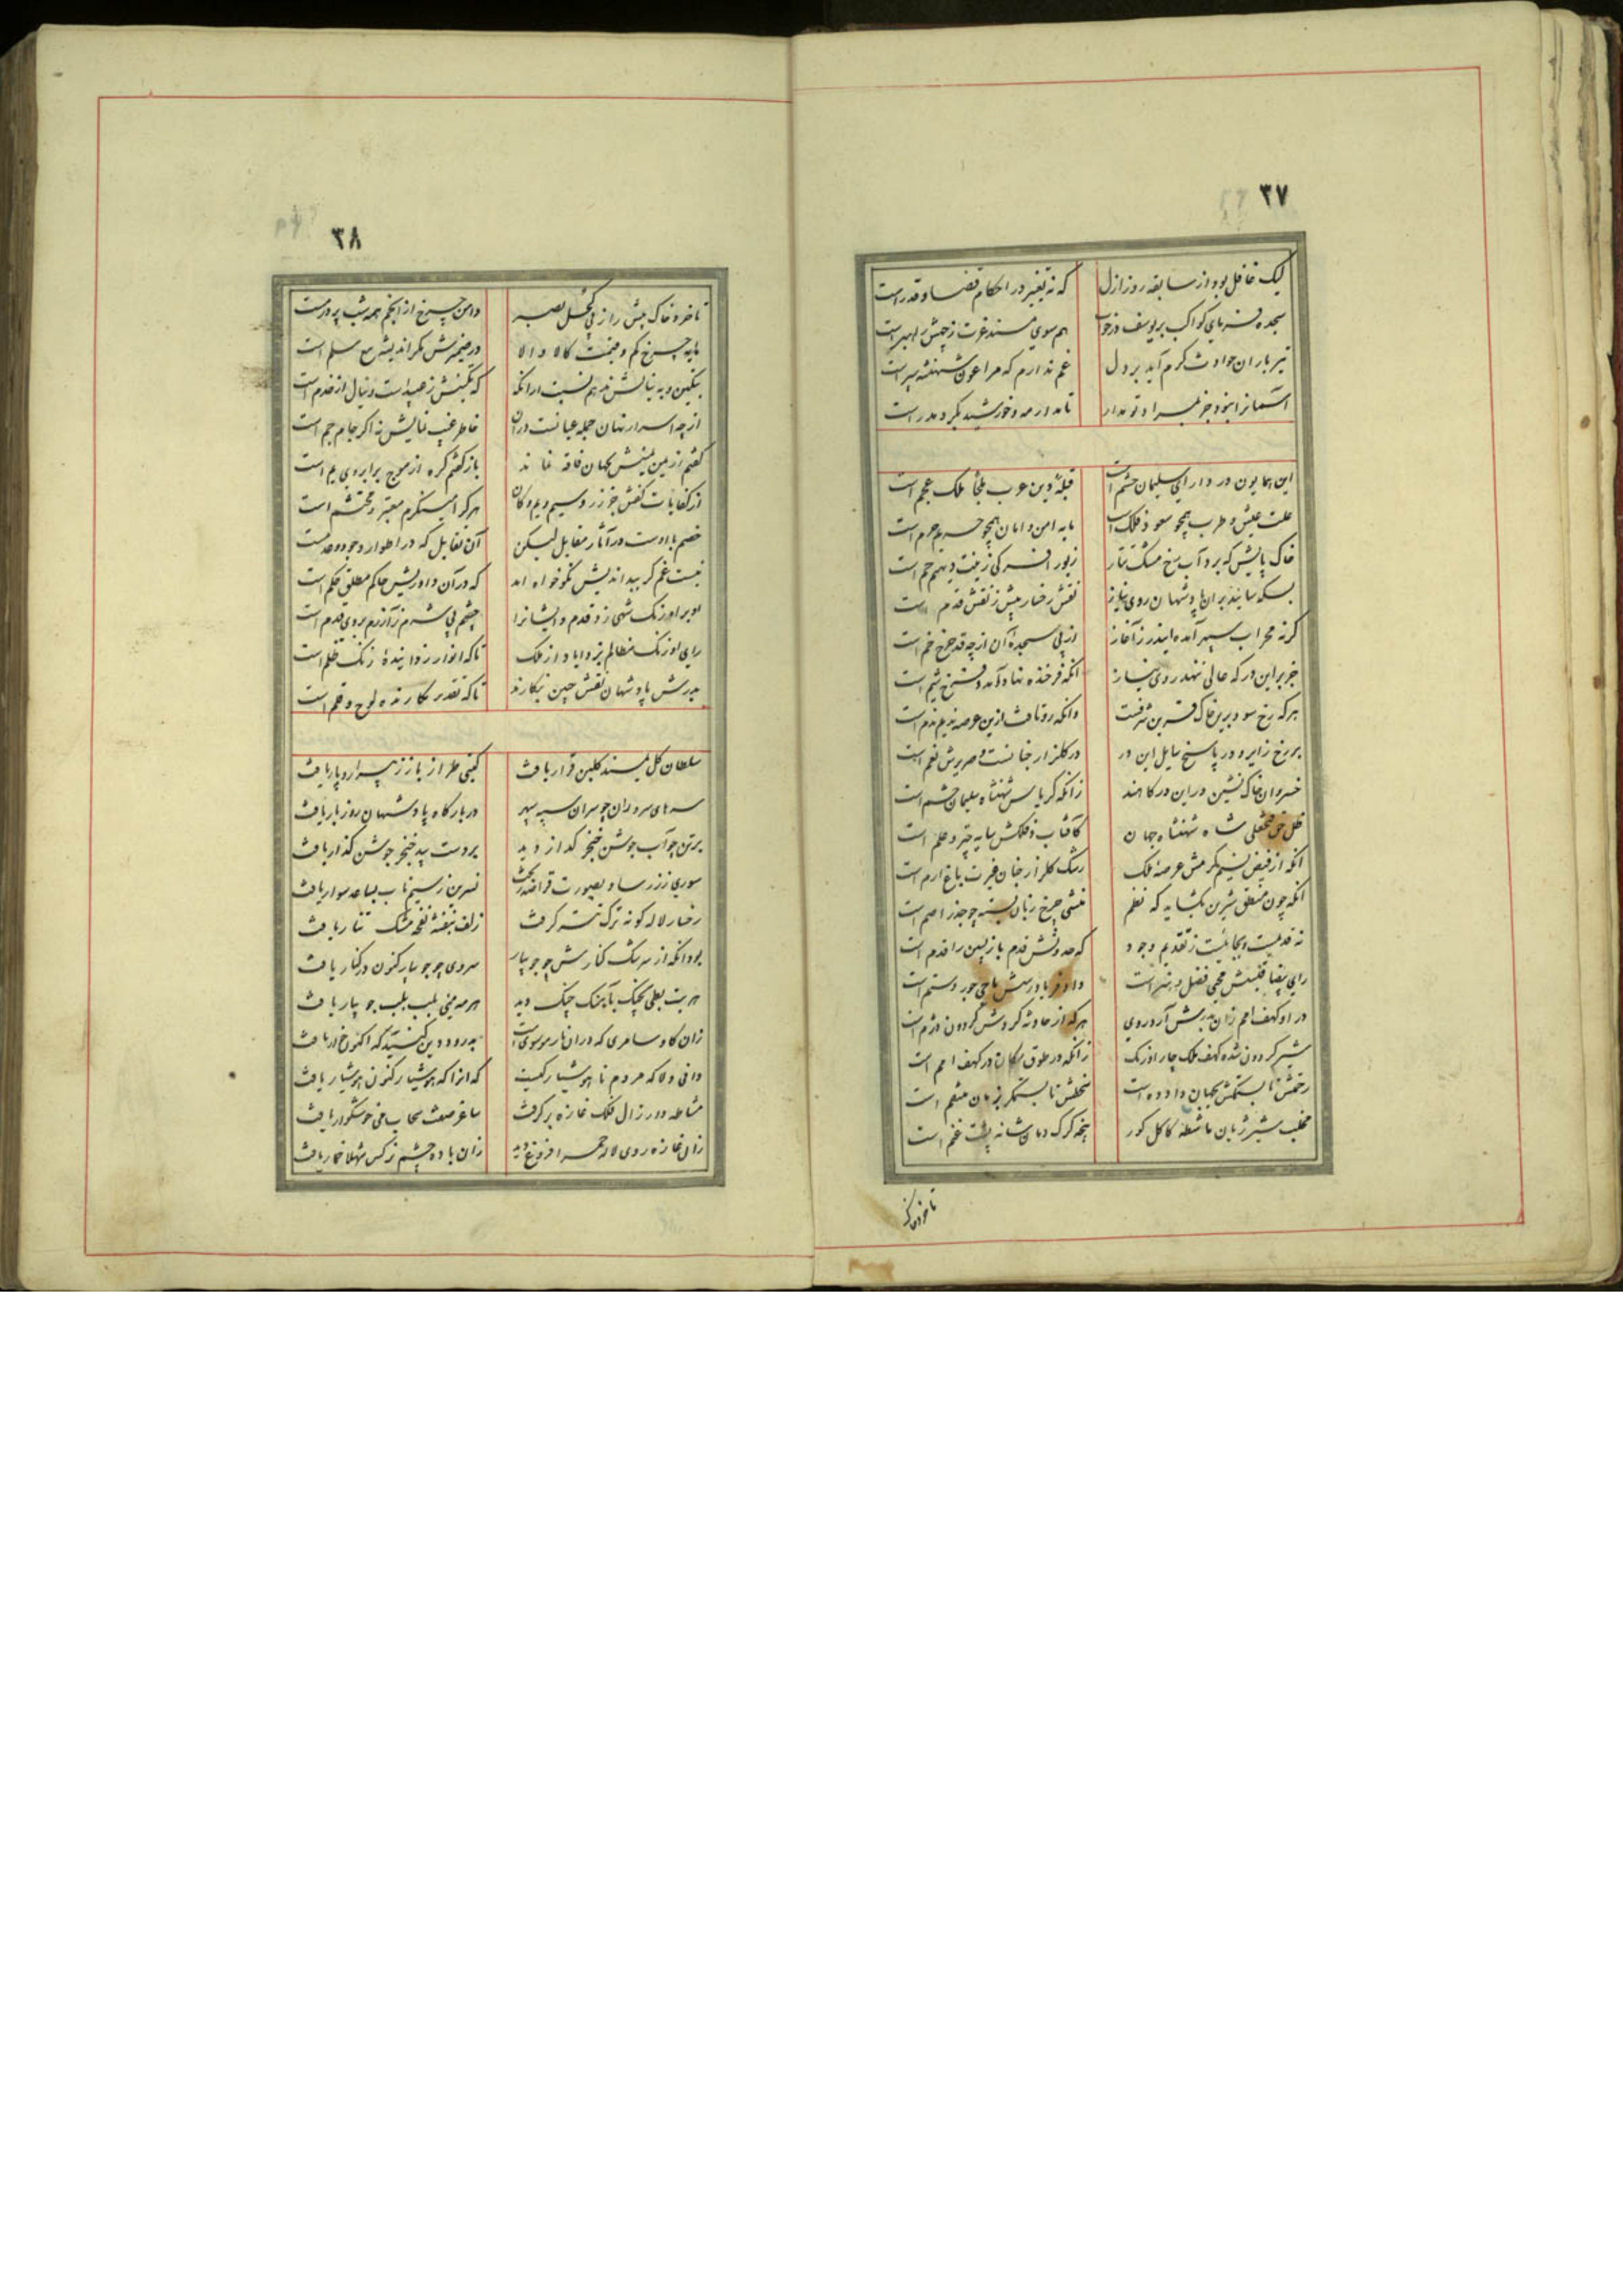 ۳۷
لیک غافل بود از سابقه روز ازل که نه تغییر در احکام قضا و قدر است
سجده فرمای کواکب بر یوسف در خواب هم سوی مسند عزت ز چهش راهبر است
تیر باران حوادث کرم آید بر دل غم ندارم که مرا عون شهنشه سپر است
آسمانرا نبود جز بمراد تو مدار تا مدار مه و خورشید بگرد مدر است
این همایون در دارای سلیمان حشم است قبلهٔ دین عرب ملجأ ملک عجم است
علت عیش و طرب همچو سعود فلک است مایه امن و امان همچو حریم حرم است
خاک پایش که برد آب رخ مشک تتار زیور افسر کی زینت دیهیم جم است
بسکه سایند بر آن پادشهان روی نیاز نقش رخسار بیش ز نقش قدم است
گر نه محراب سپهر آمده ایندر ز آغاز از پی سجدهٔ آن از چه قد چرخ خم است
جز بر این درکه عالی ننهد روی نیاز آنکه فرخنده نهاد آمد و فرخ شیم است
هر که رخ سود برین خاک قرین شرفست وانکه رو تافت ازین عرصه ندیم ندم است
بر رخ زایر و در پاسخ سایل این در در گلزار جنانست و صریرش نعم است
خسروان خاک نشین در این درگاهند زانکه کریاس شهنشاه سلیمان حشم است
ظل حق فتحعلی شاه شهنشاه جهان کافتاب فلکش سایه چتر و علم است
آنکه از فیض نسیم کرمش عرصهٔ ملک رشک گلزار جنان غیرت باغ ارم است
آنکه چون منطق شیرین بگشاید که نظم منشی چرخ زبان بسته چو جذر اصم است
نه قدیمست و بجائیست ز تقویم وجود که حدوثش قدم بازپسین را قدم است
رای بیضا قبسش محیی فضل و هنر است داد فریاد رسش ماحی جور و ستم است
در او کهف امم زان بدرش آرد روی هر که از حادثه گردش گردون دژم است
شیر گردون شده کهف ملک چار اورنگ زانکه در طوق سگان در کهف امم است
رحمتش تا بستمکش بجهان داده است سخطش تا بستمگر بزمان منتقم است
مخلب شیر ژیان ماشطه کاکل گور پنجه گرگ دمان شانه پشت غنم است
تا خرد خاک
۳۸
تا خرد خاک پیش را ز پی کحل بصر دامن چرخ از انجم همه شب پر درمست
مایه چرخ کم و قیمت کالا والا در ضمیرش مگر اندیشهٔ بیع سلم است
بنگین و به نیالش ندهم نسبت از آنکه که نگینش ز عبید است و نیال از خدم است
از چه اسرار نهان جمله عیانست در آن خاطر غیب نمایش نه اگر جام جم است
گفتم از زمین بینش بجهان فاقه نماند باز گفتم گره از موج بر ابروی یم است
از کفایات کفش جز زر و سیم و یم و کان هر که را مینگرم معتبر و محتشم است
خصم با اوست در آثار مقابل لیکن آن تقابل که در اطوار وجود و عدمست
نیست غم گر بد اندیش نکو خواه آمد که در آن داوریش حاکم مطلق حکم است
او بر اورنگ شهی زد قدم و ایشانرا چشم بی شرم ز آزرم بروی قدم است
رای او زنک مظالم بزداید از ملک تا که انوار زدایندهٔ زنگ ظلم است
بدرش پادشهان نقش جبین بنگارند تا که تقدیر نگارنده لوح و قلم است
سلطان گل بمسند گلبن قرار یافت گیتی طراز باز ز پیرار و پار یافت
سرهای سروران چو سران سپه سپهر در بارگاه پادشهان روز بار یافت
بر تن چو آب جوشن خنجر گداز دید بر دست بید خنجر جوشن گذار یافت
سوری ز زر ساو بصورت قراضه ریخت نسرین ز سیم ناب بساعد سوار یافت
رخسار لاله گونه ترک تتر گرفت زلف بنفشه نفحه مشک تتار یافت
بود آنکه از سرشک کنارش چو جویبار سروی چو جویبار کنون در کنار یافت
هر بت بطی بچنگ بآهنگ چنگ دید هر مه میی بلب بلب جویبار یافت
زان گاو سامری که در آن نار موسوی است بدرود دین کنید که اکنون خوار یافت
دانی دلا که مردم ناهوشیار کیست که آنرا که هوشیار کنون هوشیار یافت
مشاطه وار زال فلک غازه بر گرفت ساغر صفت سحاب می خوشگوار یافت
زان غازه روی لاله حمرا فروغ دید زان باده چشم نرگس شهلا خمار یافت